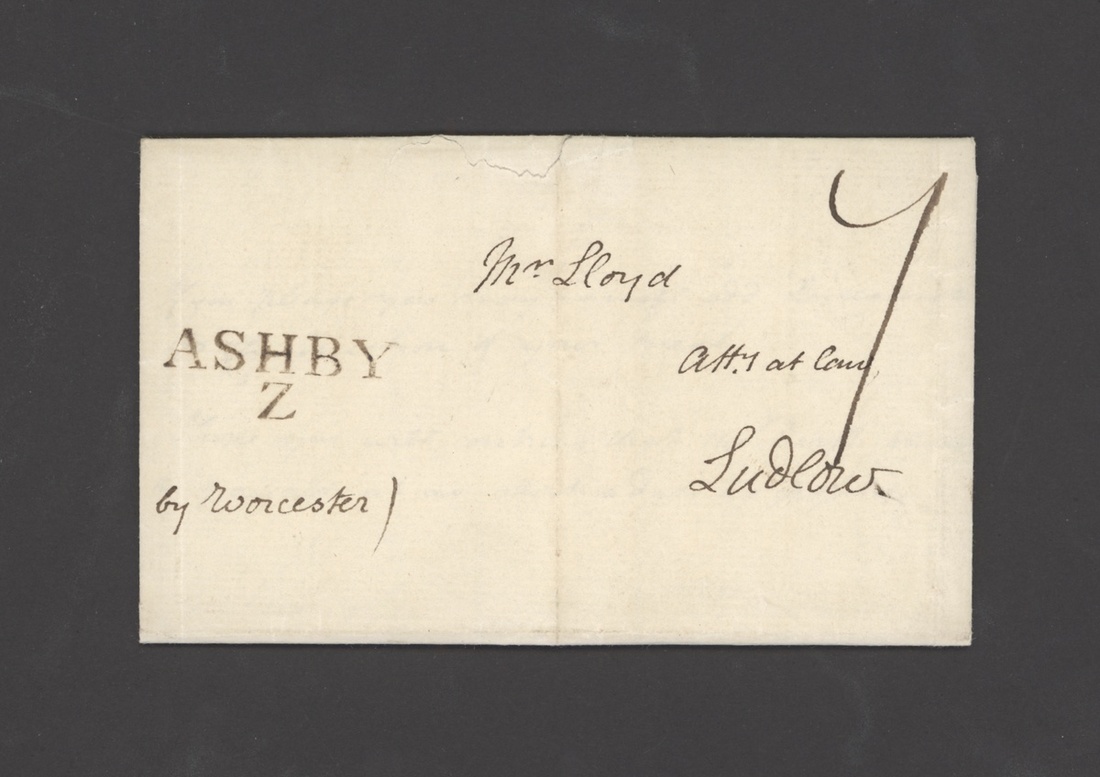 7
Mr Lloyd
ASHBY
Z
Atty at Law,
Ludlow.
by Worcester)